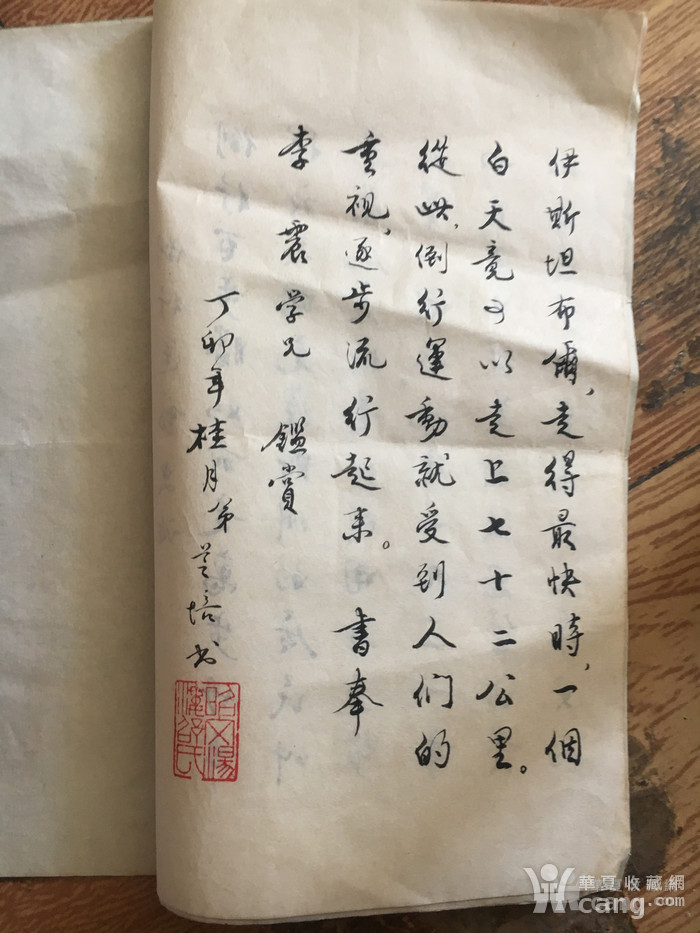 伊斯坦布爾，走得最快時，一個
白天竟可以走上七十二公里。
從此，倒行運動就受到人們的
重視，逐步流行起来。 書奉
李震学兄 鑑賞
丁卯年桂月弟 培书
華夏收藏網
cang.com